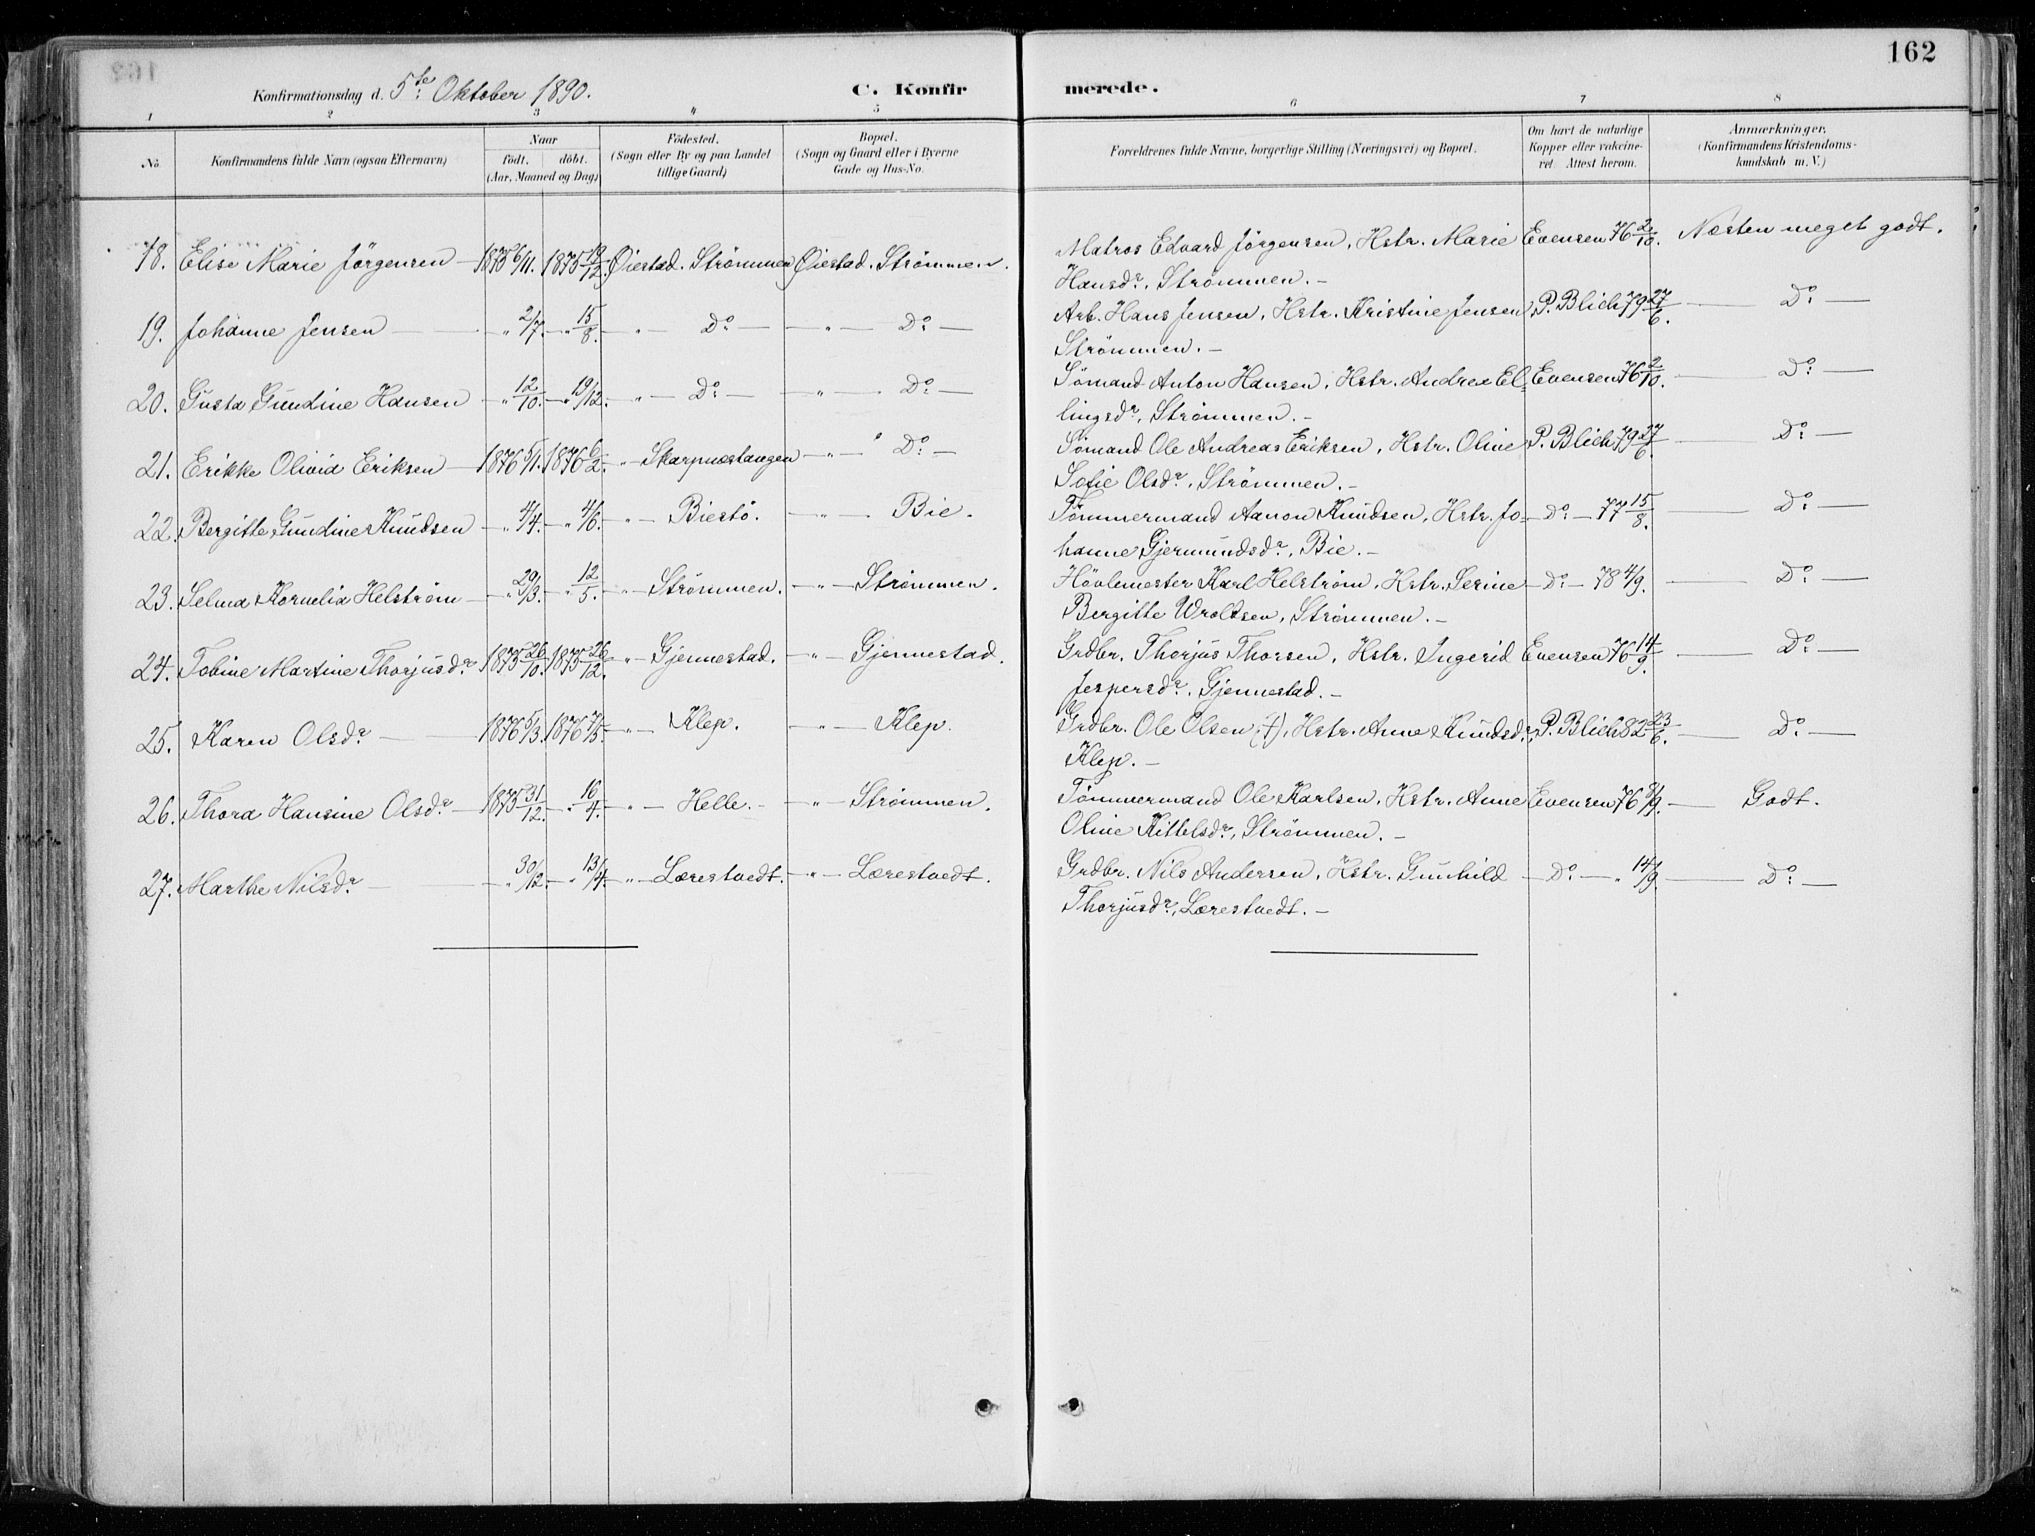 162
Konfirmationsdag d. 5te Oktober 1890. C. Konfirmerede.
1 2 3 4 5 6 7 8
No. Konfirmandens fulde Navn (ogsaa Efternavn) Naar födt. döbt. (Aar, Maaned og Dag) Födested. (Sogn eller By og paa Landet tillige Gaard) Bopæl. (Sogn og Gaard eller i Byerne Gade og Hus-No. Forældrenes fulde Navne, borgerlige Stilling (Næringsvei) og Bopæl. Om havt de naturlige Kopper eller vakcineret. Attest herom. Anmærkninger. (Konfirmandens Kristendomskundskab m. V.)
18. Elise Marie Jørgensen 1875 6/11. 1875 19/12. Øiestad. Strömmen Øiestad. Strømmen. Matros Edvard Jørgensen, Hstr. Marie Evensen 76 2/10. Næsten meget godt.
Hansdr, Strømmen. —
19. Johanne Jensen " 2/7. " 15/8. " Do " Do Arb. Hans Jensen, Hstr. Kristine Jensen, P. Blich 79 27/6. Do
Strömmen. —
20. Gusta Gundine Hansen " 12/10. " 19/12. " Do " Do Sømand Anton Hansen, Hstr. Andrea El- Evensen 76 2/10. Do
lingsdr, Strømmen. —
21. Erikke Olivia Eriksen 1876 5/1. 1876 6/2. " Skarpnestangen " Do Sømand Ole Andreas Eriksen, Hstr. Oline P. Blich 79 27/6. Do
Sofie Olsdr, Strømmen. —
22. Bergitte Gundine Knudsen " 4/4. " 4/6. " Biestö. " Bie. Tømmermand Aanon Knudsen, Hstr. Jo- Do 77 15/8. Do
hanne Gjermundsdr, Bie. —
23. Selma Kornelia Helstrøm " 29/3. " 12/5. " Strømmen. " Strømmen. Hövlemester Karl Helstrøm, Hstr. Serine Do 78 4/9. Do
Bergitte Wroldsen, Strømmen. —
24. Tobine Martine Thorjusdr 1875 26/10. 1875 26/12. " Gjennestad. " Gjennestad. Grdbr. Thorjus Thorsen, Hstr. Ingerid Evensen 76 14/9. Do
Jespersdr, Gjennestad. —
25. Karen Olsdr 1876 5/3. 1876 7/5. " Klep. " Klep. Grdbr. Ole Olsen (†), Hstr. Anne Knudsdr, P. Blich 82 23/6. Do
Klep. —
26. Thora Hansine Olsdr 1875 31/12. " 16/4. " Helle. " Strømmen. Tömmermand Ole Karlsen, Hstr. Anne Evensen 76 Godt.
Oline Kittelsdr, Strømmen. —
27. Marthe Nilsdr " 30/12. " 13/4. " Lærestvedt. " Lærestvedt. Grdbr. Nils Andersen, Hstr. Gunhild Do " 14/9. Do
Thorjusdr, Lærestvedt. —